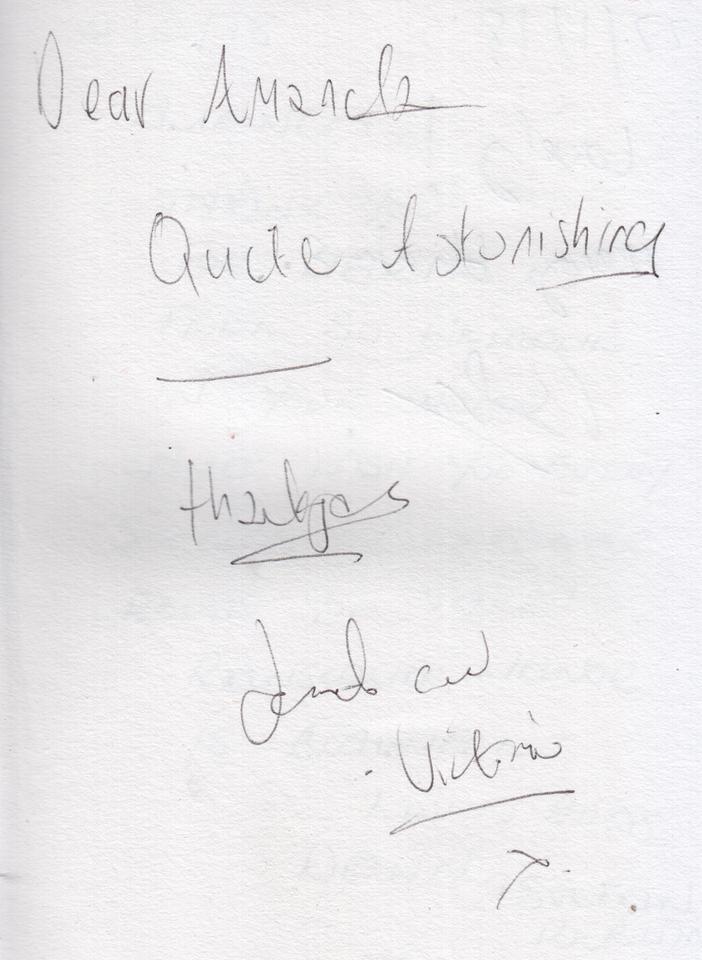 Dear Amanda
Quite Astonishing
thankyou
and
Victoria
x